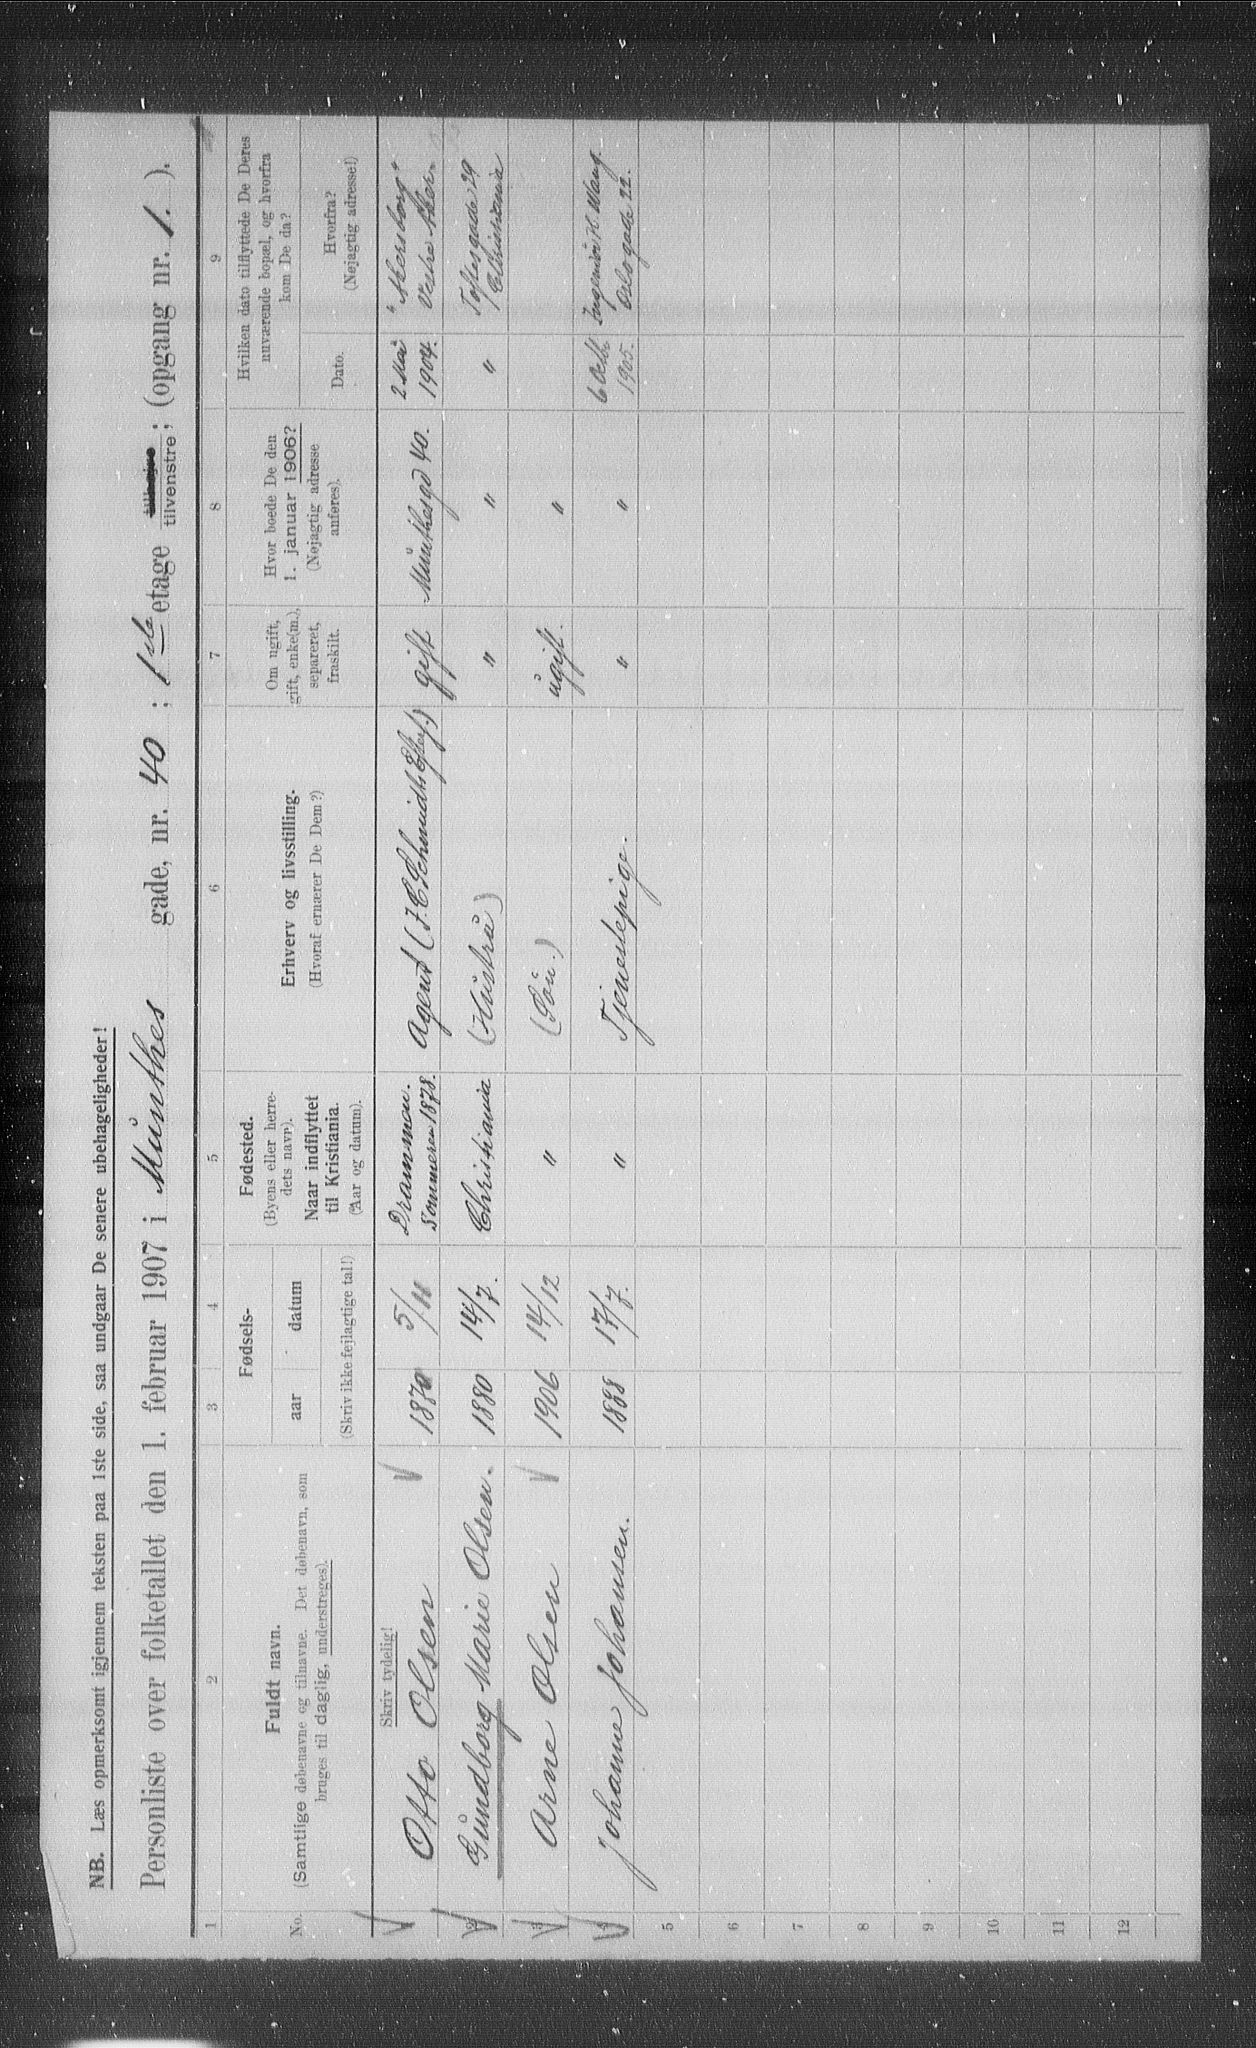 NB. Læs opmerksomt igjennem teksten paa 1ste side, saa undgaar De senere ubehageligheder!
Personliste over folketallet den 1. februar 1907 i Munthes gade, nr. 40 ; 1ste etage tilvenstre; (opgang nr. 1. ).
1 2 3 4 5 6 7 8 9
No.
Fuldt navn.
(Samtlige døbenavne og tilnavne. Det døbenavn, som
bruges til daglig, understreges).
Fødsels-
aar datum
(Skriv ikke fejlagtige tal!)
Fødested.
(Byens eller herre-
dets navn).
Naar indflyttet
til Kristiania.
(Aar og datum).
Erhverv og livsstilling.
(Hvoraf ernærer De Dem?)
Om ugift,
gift, enke(m.),
separeret,
fraskilt.
Hvor boede De den
1. januar 1906?
(Nøjagtig adresse
anføres).
Hvilken dato tilflyttede De Deres
nuværende bopæl, og hvorfra
kom De da?
Dato.
Hvorfra?
(Nøjagtig adresse!)
Skriv tydelig!
Otto Olsen 5/11 Drammen. Agent (J. C. Schmidts Efterf.) gift Munthesgd 40. 2 Mai "Akersborg"
Sommeren 1878. 1904. Vestre Aker.
2 Gundborg Marie Olsen. 1880 14/7. Christiania (Hustru) " " " Toftesgade 29
Christiania
3 Arne Olsen 1906 14/12 " (Søn.) ugift. "
4 Johanne Johansen. 1888 17/7. " Tjenestepige. " " 6 Octb Ingeniør H. Wang
1905. Oslogade 22.
5
6
7
8
9
10
11
12